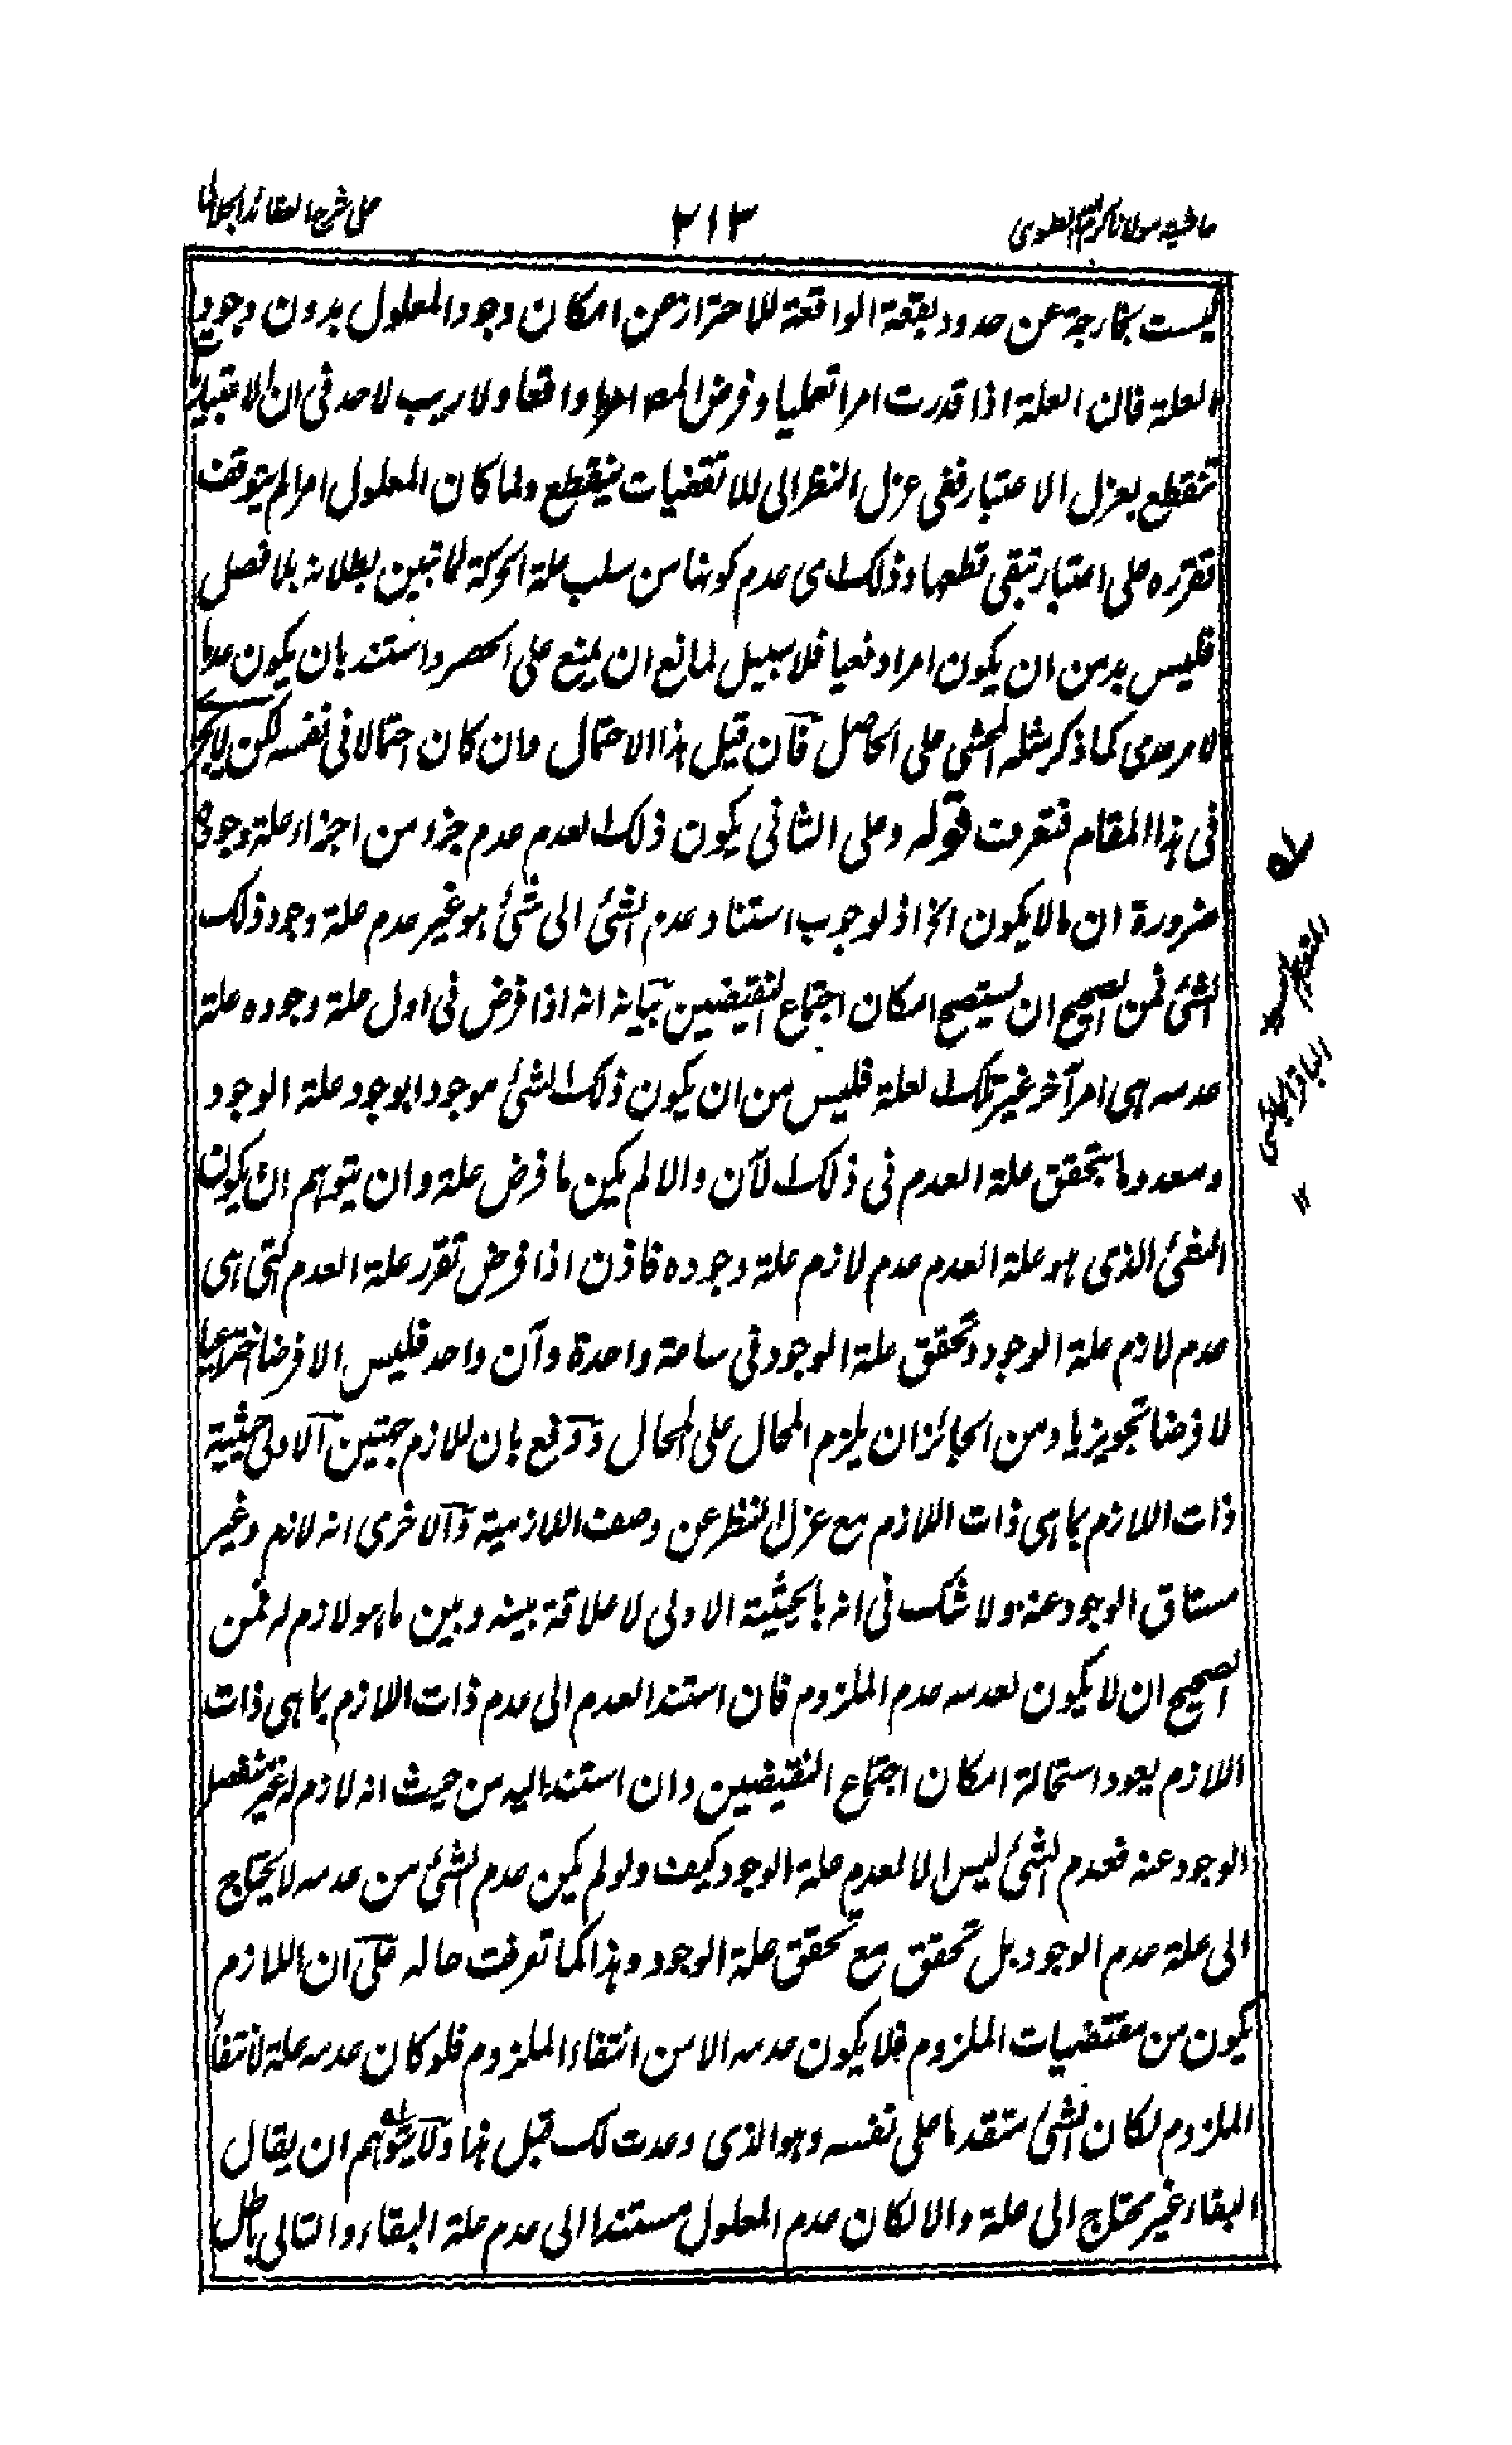 حاشية مولانا العلوى ٢١٣ على شرح العقائد الجلالى
ليست بخارجة عن حدود بقعة الواقعة للاحتراز عن امكان وجود المعلول بدون وجود
العلة فان العلة اذا قدرت امرا تعمليا وفرض واقعا ولا ريب لاحد فى ان
تنقطع بعزل الاعتبار ففى عزل النظر الى فينقطع ولما كان المعلول امرا لم يتوقف
تقرره على اعتبار تبقى قطعها وذلك اى عدم كونها من سلب علة الحركة لما تبين بطلانه بلا فصل
فليس بد من ان يكون امرا دفعيا فلا سبيل لمانع ان يمنع على الحصر واستند بان يكون عدما
لامر عدمى كما ذكر مثله المحشى على الحاصل فان قيل هذا الاحتمال وان كان احتمالا فى نفسه لكن
فى هذا المقام فتعرف قوله وعلى الثانى يكون ذلك العدم عدم جزء من اجزاء علة وجوده
ضرورة ان ما لا يكون الخ اذ لوجوب استناد عدم الشئ الى شئ هو غير عدم علة وجود ذلك
الشئ فمن الصحيح ان يستصح امكان اجتماع النقيضين بيانه انه اذا فرض فى اول علة وجوده علة
عدمه هى امر آخر غير تلك العلة فليس من ان يكون ذلك الشئ موجودا بوجود علة الوجود
ومعدوما بتحقق علة العدم فى ذلك الآن والا لم يكن ما فرض علة وان يتوهم ان يكون
الذى هو علة العدم عدم لازم علة وجوده فاذن اذا فرض تقرر علة العدم التى هى
عدم لازم علة الوجود وتحقق علة الوجود فى ساعة واحدة وآن واحد فليس الا فرضا اختراعيا
لا فرضا تجويزيا ومن الجائز ان يلزم المحال على المحال ودفع بان للازم جهتين الاولى حيثية
ذات اللازم بما هى ذات اللازم مع عزل النظر عن وصف اللازمية والاخرى انه لازم وغير
الوجود عنه ولا شك فى انه بالحيثية الاولى لا علاقة بينه وبين ما هو لازم له فمن
الصحيح ان لا يكون لعدمه عدم الملزوم فان استند العدم الى عدم ذات اللازم بما هى ذات
اللازم يعود استحالة امكان اجتماع النقيضين وان استند اليه من حيث انه لازم له غير منفصل
الوجود عنه فعدم الشئ ليس الا لعدم علة الوجود كيف ولو لم يكن عدم الشئ من عدمه لا يحتاج
الى علة عدم الوجود بل تحقق مع تحقق علة الوجود وهذا كما تعرفت حاله على ان اللازم
يكون من مقتضيات الملزوم فلا يكون عدمه الا من انتفاء الملزوم فلو كان عدمه علة لانتفاء
الملزوم لكان الشئ متقدما على نفسه وهو الذى وعدت لك قبل هذا ولا يتوهم ان يقال
البقاء غير محتاج الى علة والا لكان عدم المعلول مستندا الى عدم علة البقاء والتالى باطل